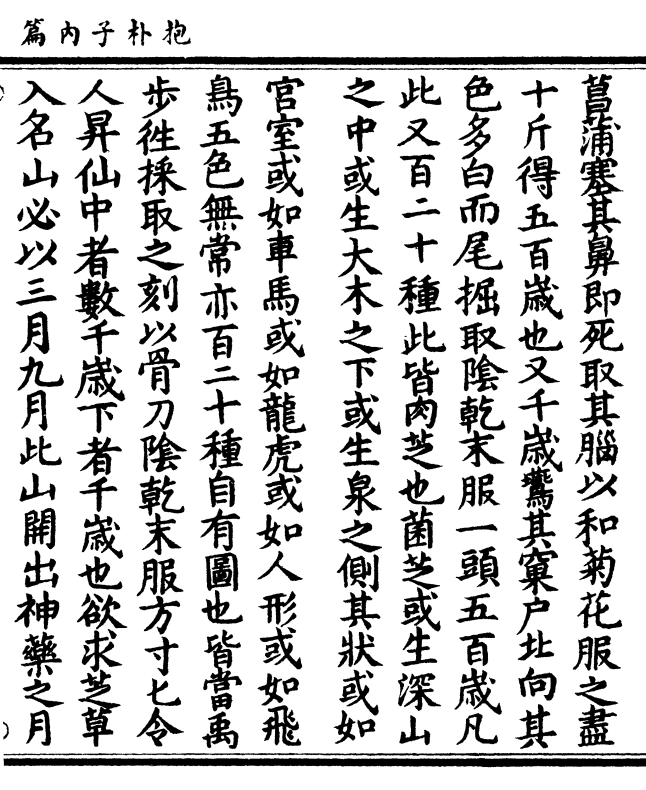 抱朴子內篇
菖蒲塞其鼻即死取其腦以和菊花服之盡
十斤得五百歲也又千歲鷰其窠户北向其
色多白而尾掘取陰乾末服一頭五百歲凡
此又百二十種此皆肉芝也菌芝或生深山
之中或生大木之下或生泉之側其狀或如
宮室或如車馬或如龍虎或如人形或如飛
鳥五色無常亦百二十種自有圖也皆當禹
步徃採取之刻以骨刀陰乾末服方寸匕令
人昇仙中者數千歲下者千歲也欲求芝草
入名山必以三月九月此山開出神藥之月